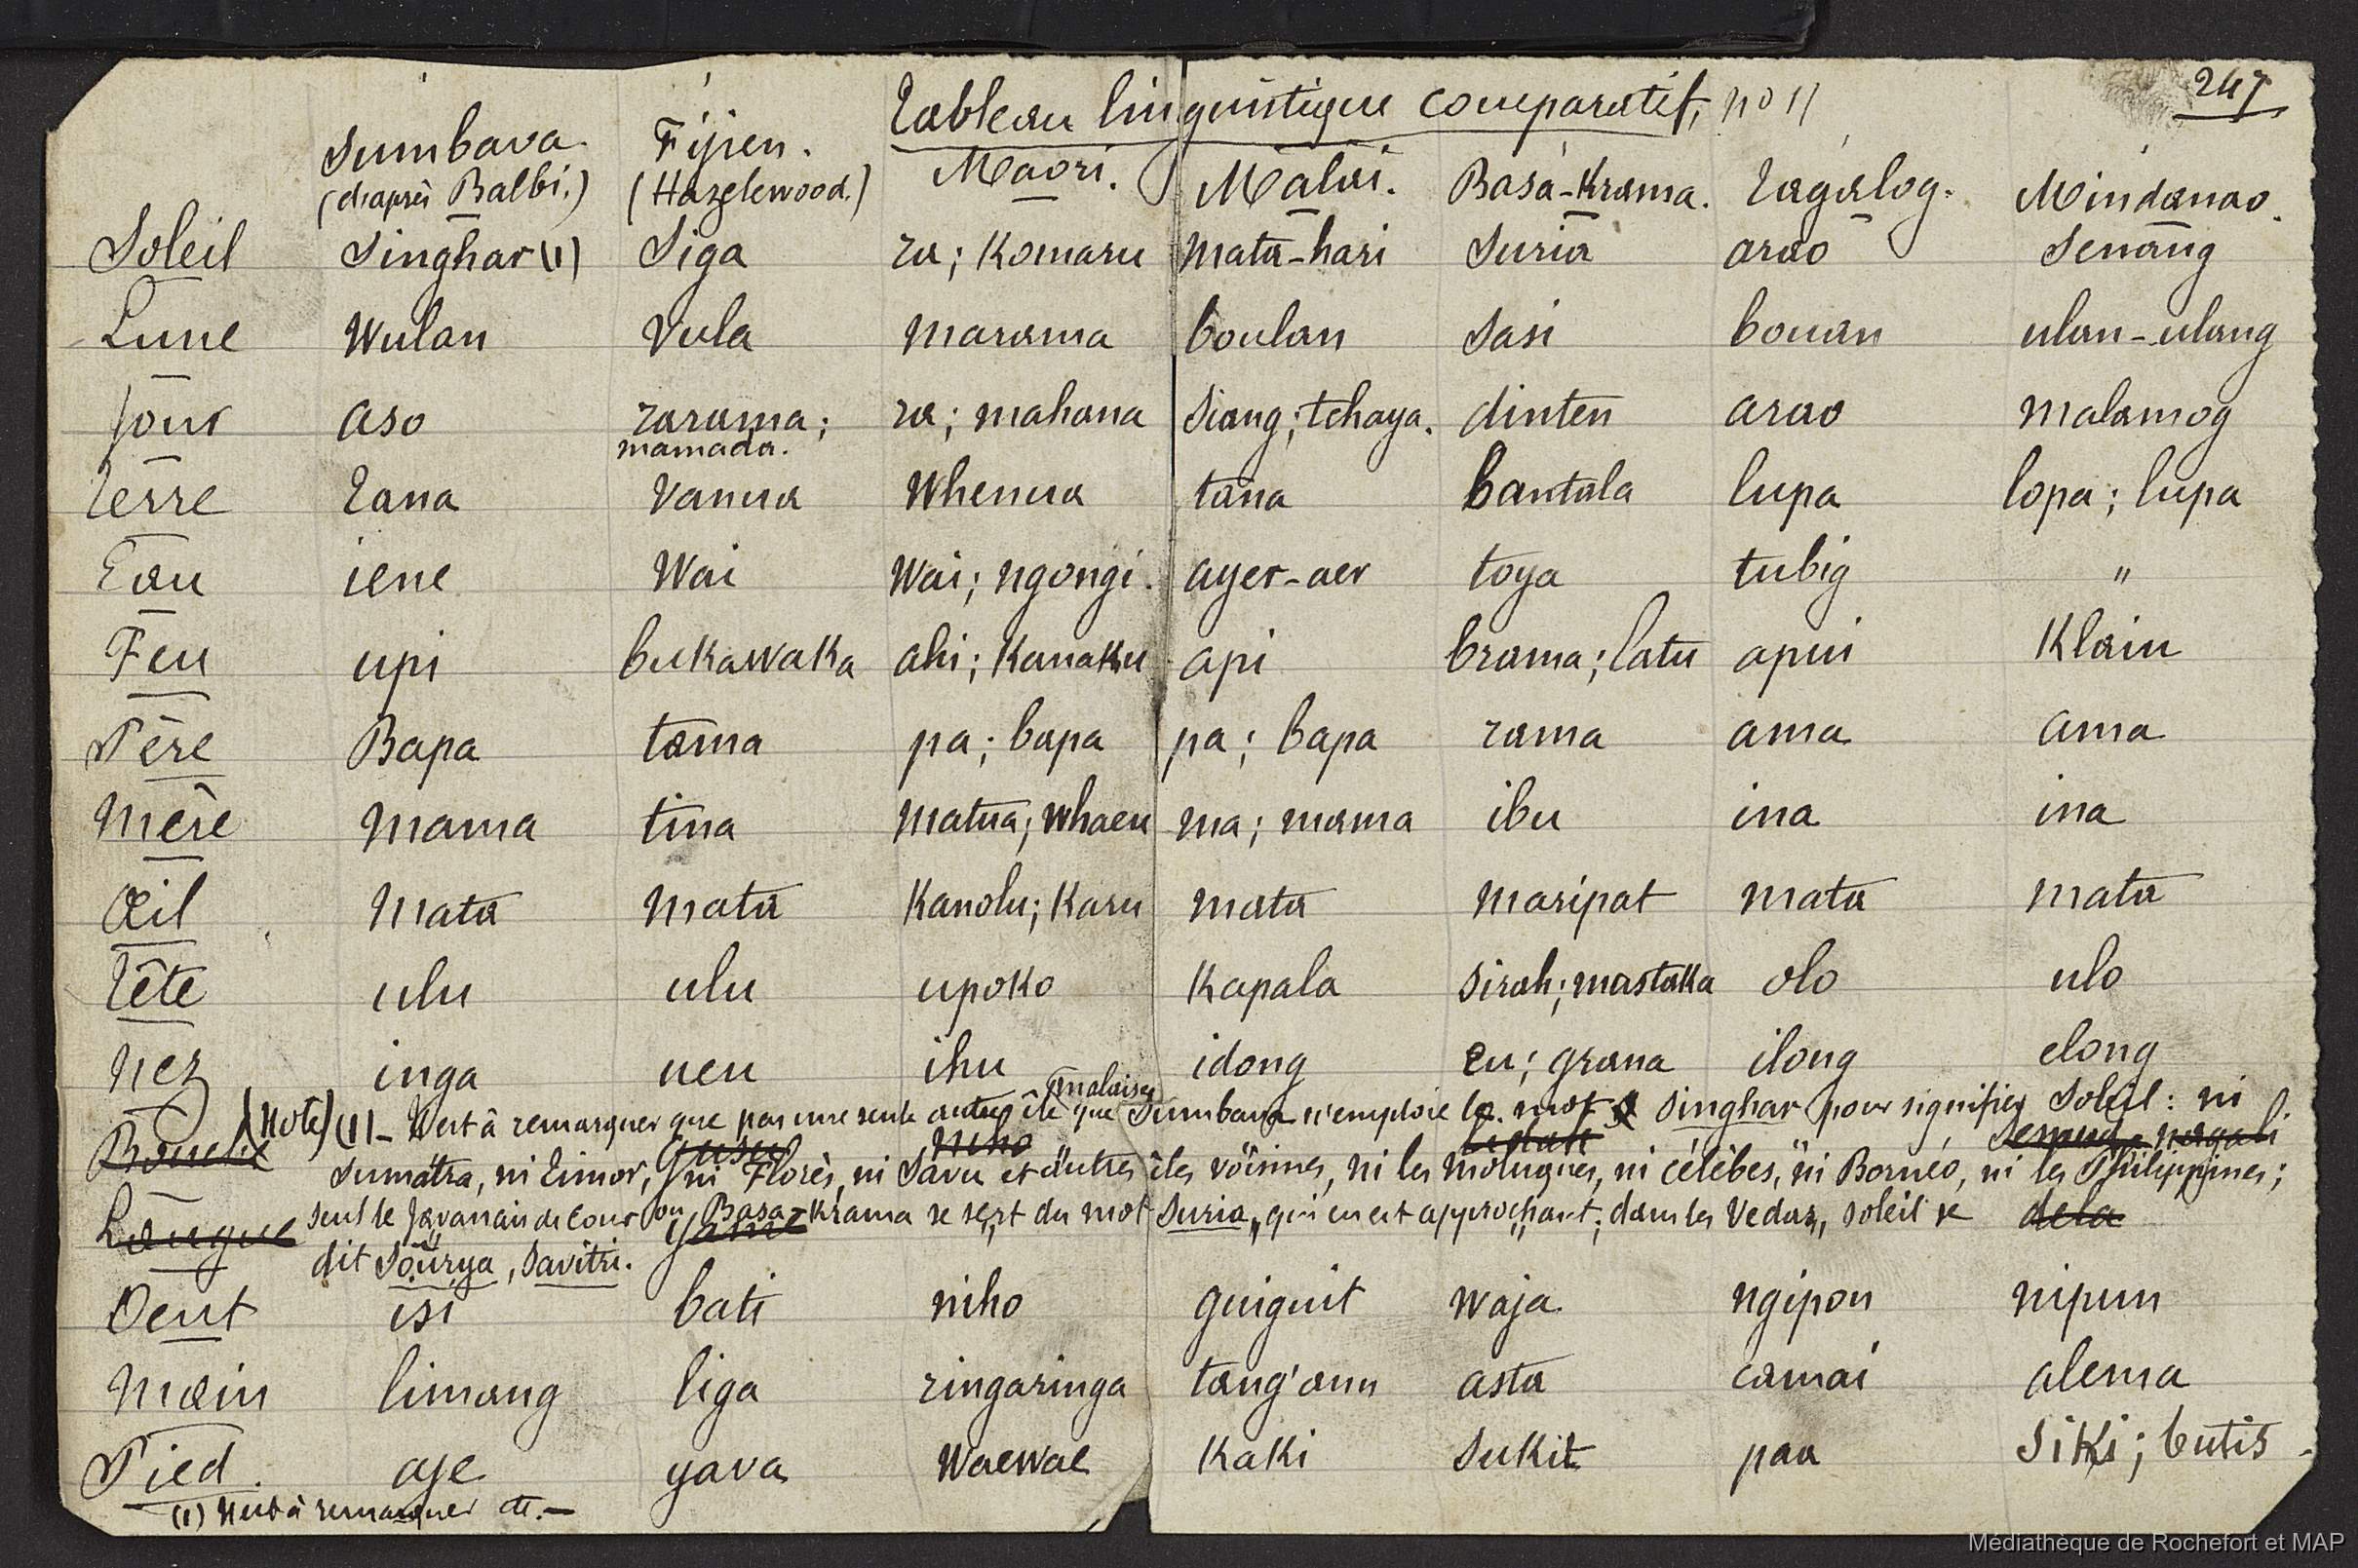 247
Tableau linguistique comparatif, no 11
Sumbava. Fijien. Maori. Malai. Basa-Krama. Tagalog. Mindanao.
(d'après Balbi.) (Hazelewood.)
Soleil Singhar (1) Siga ra; Komaru mata-hari Suria arao Senang
Lune Wulan Vula marama boulan Sasi bouan ulan-ulang
Jour aso rarama; ra; mahana Siang; tchaya. dinten arao malamog
mamada.
Terre Tana Vanua Whenua tana bantala lupa lopa; lupa
Eau iene Wai Wai; ngongi. ayer-aer toya tubig "
Feu upi bukawaka ahi; Kanaku api brama; latu apui Klaiu
Père Bapa tama pa; bapa pa; bapa rama ama ama
Mère mama tina matua; whaea ma; mama ibu ina ina
Œil mata mata Kanolu; Karu mata maripat mata mata
Tête ulu ulu upoko Kapala Sirah; mastaka olo ulo
Nez inga ucu ihu idong eu; grana ilong elong
malaise
(Note) (1) - Il est à remarquer que pas une seule autre île que Sumbava n'emploie le mot Singhar pour signifier Soleil: ni
Bouche Gusu Niho Lidah
Sumatra, ni Timor, ni Florès, ni Savu et autres îles voisines, ni les Moluques, ni Célèbes, ni Bornéo, ni les Philippines;
Langue dela
seul le Javanais de Cour ou Basa-Krama se sert du mot Suria, qui en est approchant; dans les Vedas, soleil se
dit Soùrya, Savitri.
Dent isi bati niho guiguit waja ngipon nipun
Main limang liga ringaringa tang'ann asta camai alema
Pied. aje yava waewae Kaki Sukit paa Siki; butis.
(1) Il est à remarquer etc. —
Médiathèque de Rochefort et MAP